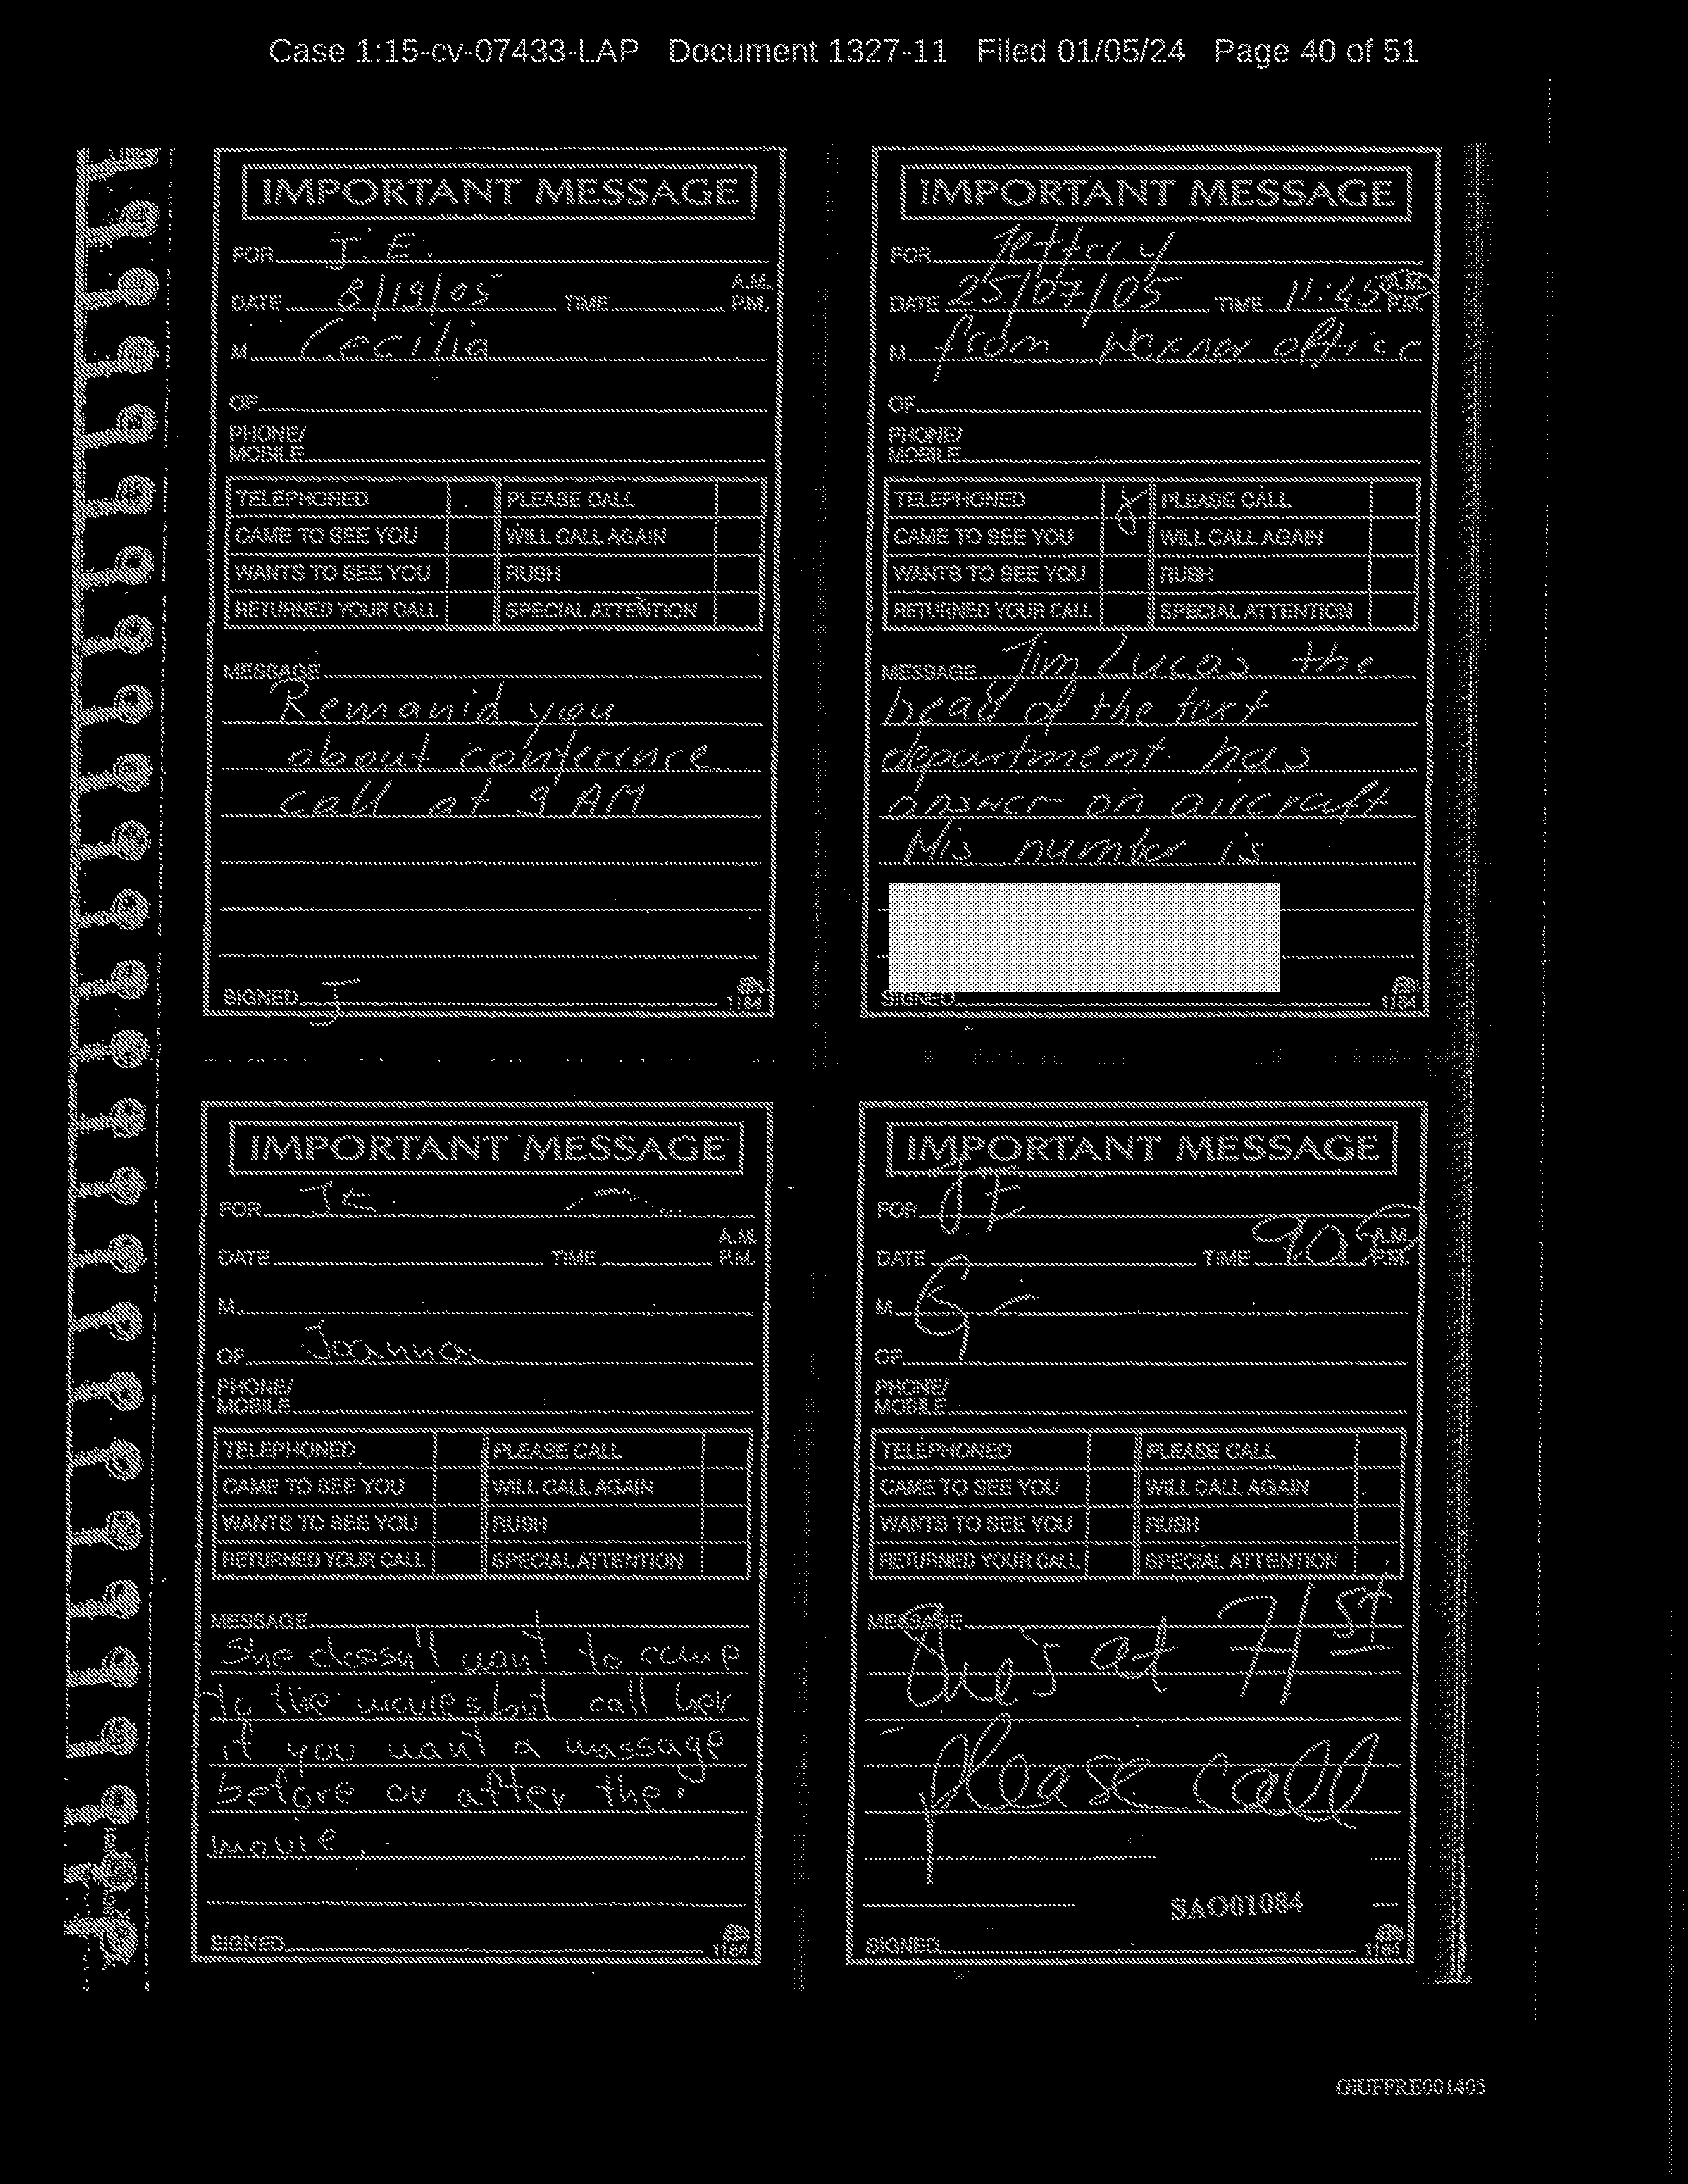 Case 1:15-cv-07433-LAP Document 1327-11 Filed 01/05/24 Page 40 of 51
IMPORTANT MESSAGE
FOR J.E.
DATE 8/19/05 TIME A.M. P.M.
M Cecilia
OF
PHONE/
MOBILE
TELEPHONED PLEASE CALL
CAME TO SEE YOU WILL CALL AGAIN
WANTS TO SEE YOU RUSH
RETURNED YOUR CALL SPECIAL ATTENTION
MESSAGE
Remanid you
about conference
call at 9 AM
SIGNED J
1184
IMPORTANT MESSAGE
FOR Jeffrey
DATE 25/07/05 TIME 11:45 A.M. P.M.
M from Wexner office
OF
PHONE/
MOBILE
TELEPHONED PLEASE CALL
CAME TO SEE YOU WILL CALL AGAIN
WANTS TO SEE YOU RUSH
RETURNED YOUR CALL SPECIAL ATTENTION
MESSAGE Jim Lucas the
head of the
department has
answer on aircraft
His number is
SIGNED
1184
IMPORTANT MESSAGE
FOR JE
DATE TIME A.M. P.M.
M
OF Joanna
PHONE/
MOBILE
TELEPHONED PLEASE CALL
CAME TO SEE YOU WILL CALL AGAIN
WANTS TO SEE YOU RUSH
RETURNED YOUR CALL SPECIAL ATTENTION
MESSAGE
She doesn't want to come
to the movies, but call her
if you want a massage
before or after the
movie.
SIGNED
1184
IMPORTANT MESSAGE
FOR JE
DATE TIME 9:05 A.M. P.M.
M G
OF
PHONE/
MOBILE
TELEPHONED PLEASE CALL
CAME TO SEE YOU WILL CALL AGAIN
WANTS TO SEE YOU RUSH
RETURNED YOUR CALL SPECIAL ATTENTION
MESSAGE
She's at 71ST
please call
SAO01084
SIGNED
1184
GIUFFRE001405